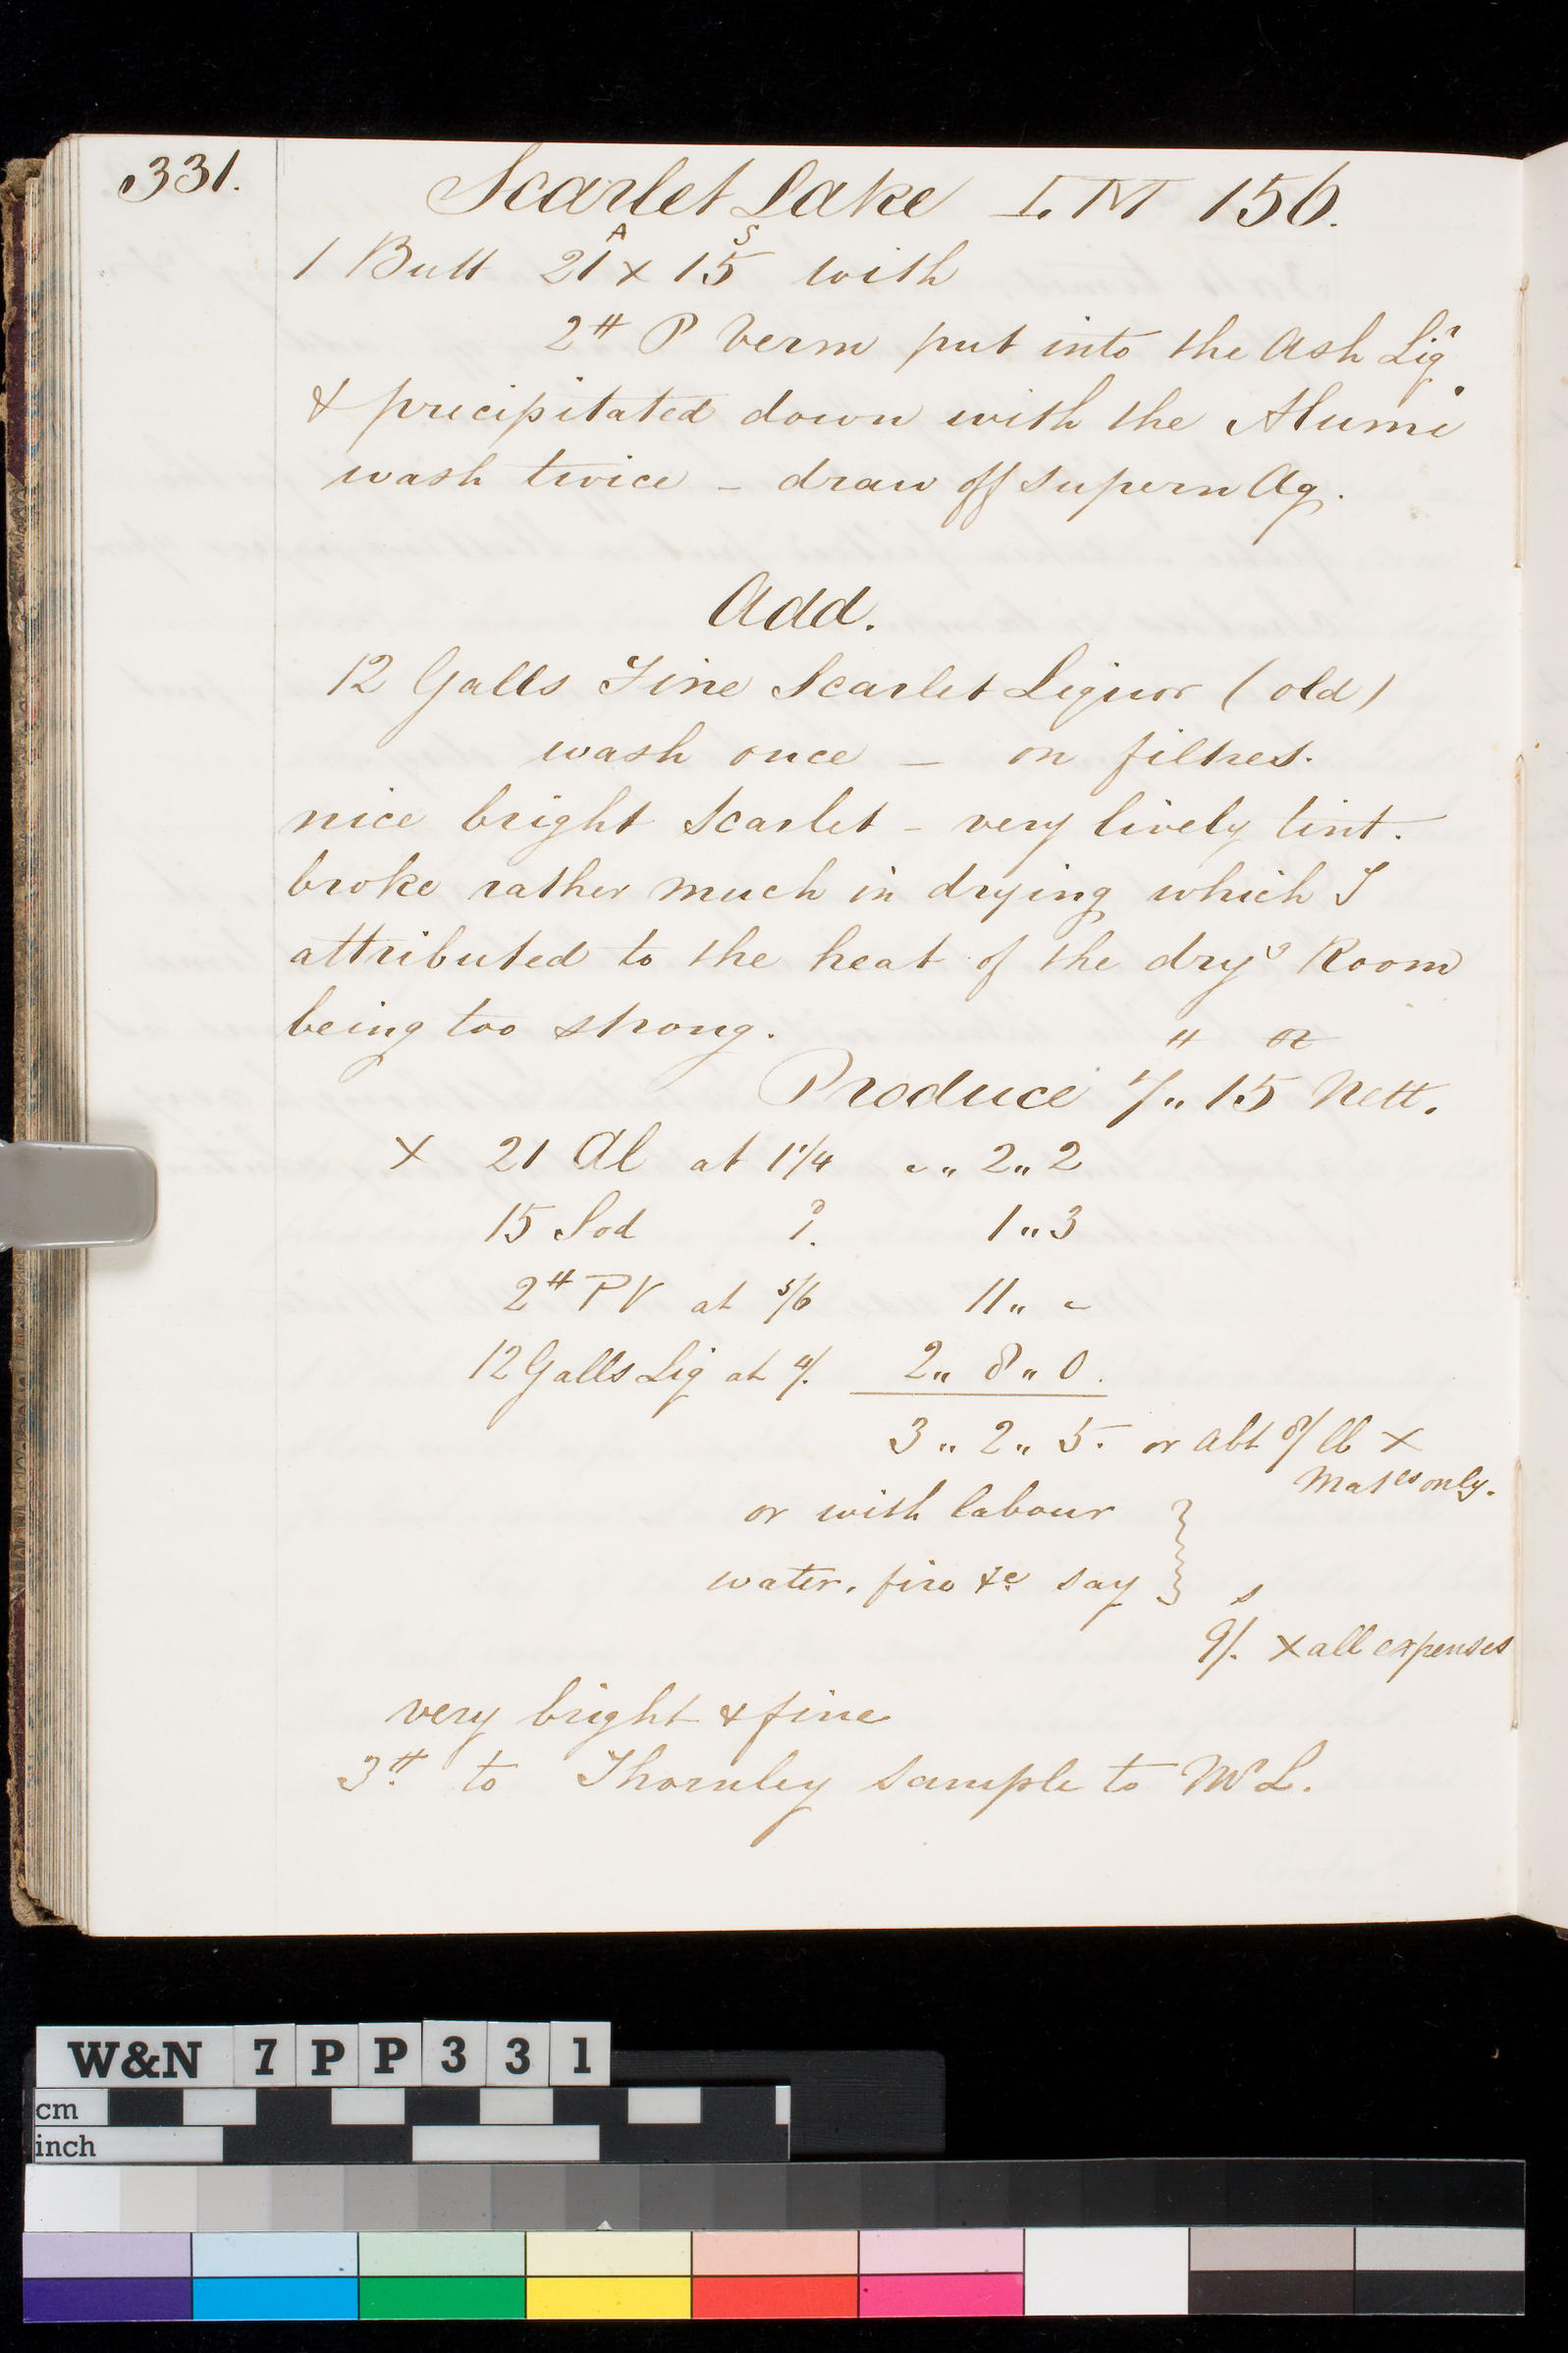 331.
Scarlet Lake I. M 156.
1 Butt 21 A x 15 S with
2 # P Verm put into the Ash Liqr
& precipitated down with the Alumi
wash twice – draw off supern Aq.
Add.
12 Galls Fine Scarlet Liquor (old)
wash once – on filtres.
nice bright Scarlet – very lively tint.
broke rather much in drying which I
attributed to the heat of the dryg Room
being too strong.
# oz
Produce 7 „ 15 Nett.
x 21 Al at 1 1/4 – „ 2 „ 2
15 Sod 1. 1 „ 3
2 # PV at 5/6 11 „ –
12 Galls Liq at 4/. 2 „ 8 „ 0.
3 „ 2 „ 5. or abt 8/ lb x
Matls only.
or with labour
water, fire &c say
s
9/. x all expenses
very bright & fine
3 # to Thornley sample to Mr L.
W&N 7PP331
cm
inch